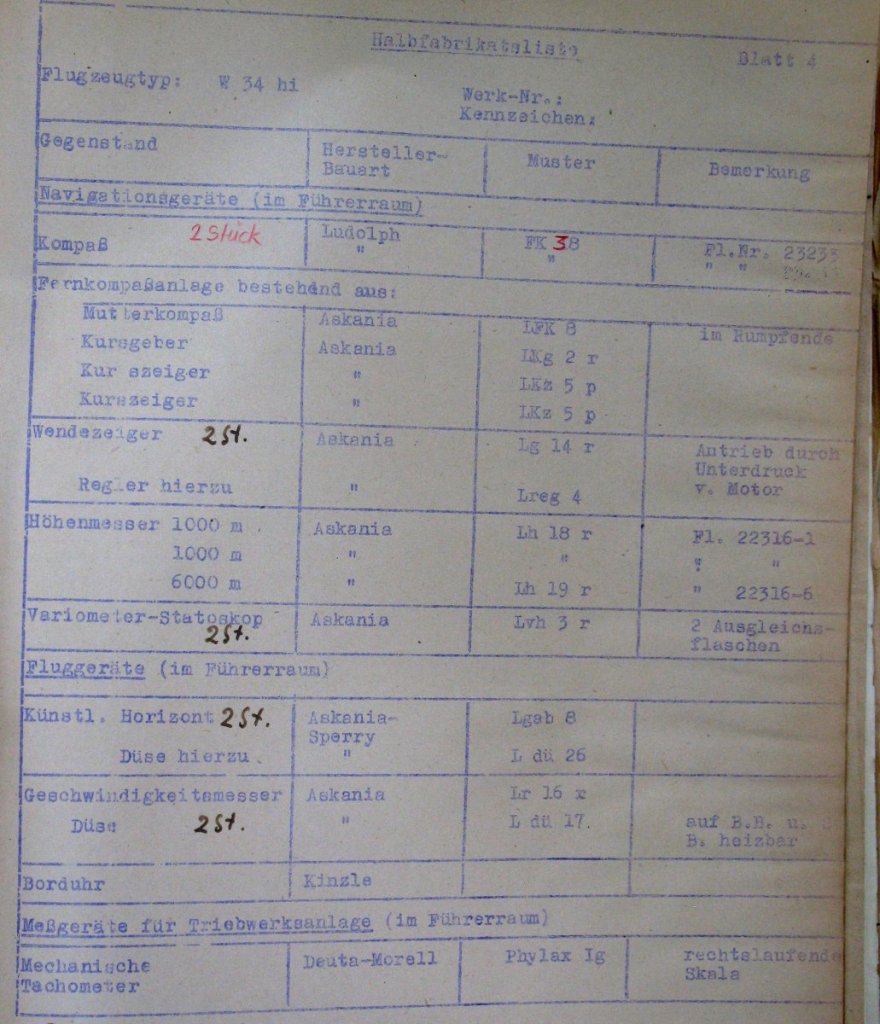 Halbfabrikateliste Blatt 4
Flugzeugtyp: W 34 hi
Werk-Nr.:
Kennzeichen:
Gegenstand Hersteller-Bauart Muster Bemerkung
Navigationsgeräte (im Führerraum)
Kompaß 2 Stück Ludolph FK 38 Fl.Nr. 23233
" " " "
Fernkompaßanlage bestehend aus:
Mutterkompaß Askania LFK 8 im Rumpfende
Kursgeber Askania LKg 2 r
Kur szeiger " LKz 5 p
Kurszeiger " LKz 5 p
Wendezeiger 2 St. Askania Lg 14 r Antrieb durch
Unterdruck
Regler hierzu " Lreg 4 v. Motor
Höhenmesser 1000 m Askania Lh 18 r Fl. 22316-1
1000 m " " " "
6000 m " Lh 19 r " 22316-6
Variometer-Statoskop Askania Lvh 3 r 2 Ausgleichs-
2 St. flaschen
Fluggeräte (im Führerraum)
Künstl. Horizont 2 St. Askania- Lgab 8
Sperry
Düse hierzu " L dü 26
Geschwindigkeitsmesser Askania Lr 16 x
Düse 2 St. " L dü 17. auf B.B. u.
B. heizbar
Borduhr Kinzle
Meßgeräte für Triebwerksanlage (im Führerraum)
Mechanische Deuta-Morell Phylax Ig rechtslaufende
Tachometer Skala